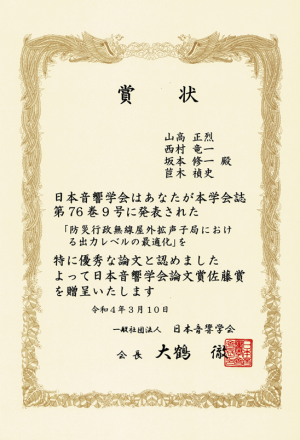 賞状
山高 正烈
西村 竜一
坂本 修一 殿
苣木 禎史
日本音響学会はあなたが本学会誌
第76巻9号に発表された
「防災行政無線屋外拡声子局におけ
る出力レベルの最適化」を
特に優秀な論文と認めました
よって日本音響学会論文賞佐藤賞
を贈呈いたします
令和4年3月10日
一般社団法人 日本音響学会
会長 大鶴 徹